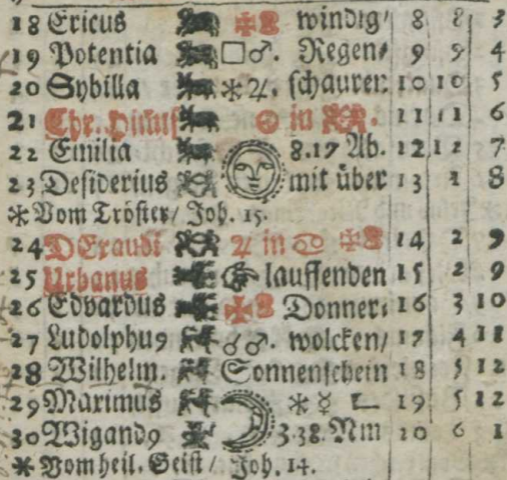 18 Ericus windig/ 8 8 3
19 Potentia □♂. Regen⸗ 9 9 4
20 Sybilla ⚹♃. schauren 10 10 5
21 Chr. ☉ in ♊. 11 11 6
22 Emilia 8.17 Ab. 12 12 7
23 Desiderius mit über 13 1 8
⚹ Vom Tröster/ Joh. 15.
24 D Exaudi ♃ in ♋ 14 2 9
25 Urbanus lauffenden 15 2 9
26 Edvardus Donner⸗ 16 3 10
27 Ludolphus ☌♂. wolcken/ 17 4 11
28 Wilhelm. Sonnenschein 18 5 12
29 Maximus ⚹ ☿ 19 5 12
30 Wigandꝰ 3.38. Nm 20 6 1
⚹ Vom heil. Geist / Joh. 14.